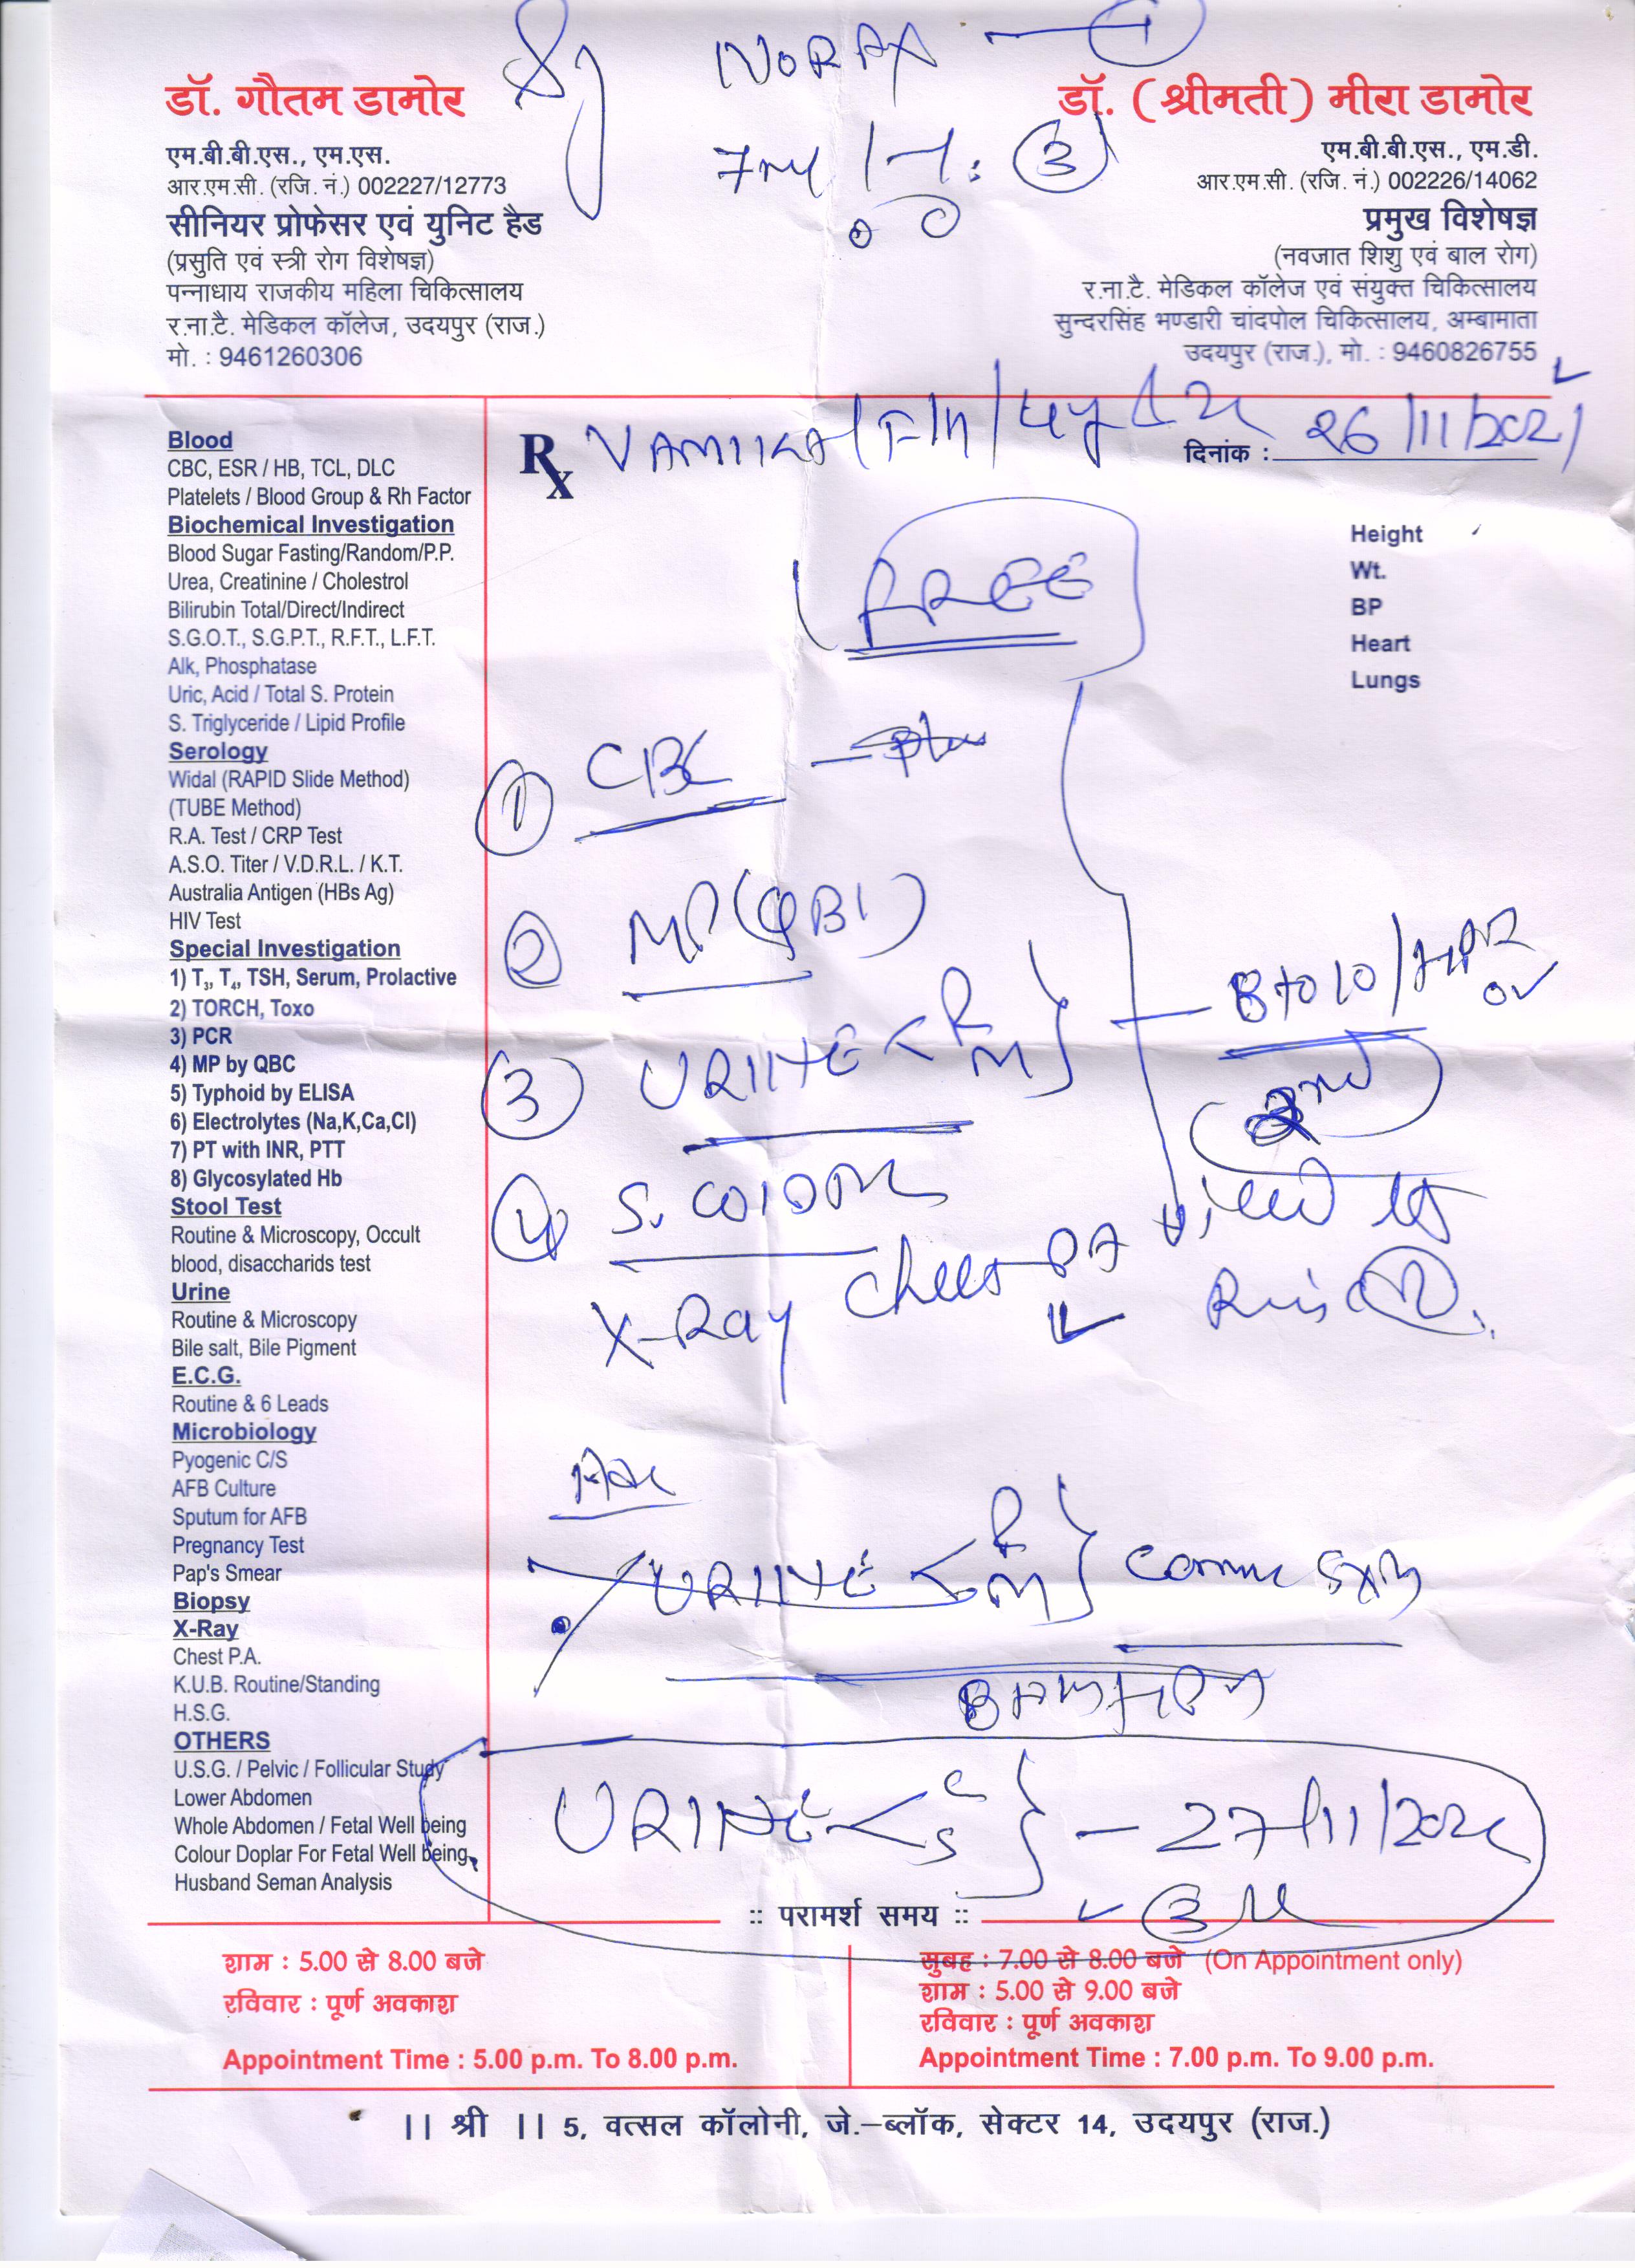 Sy NORAX — 1
7ml 3
डॉ. गौतम डामोर
एम.बी.बी.एस., एम.एस.
आर.एम.सी. (रजि. नं.) 002227/12773
सीनियर प्रोफेसर एवं युनिट हैड
(प्रसुति एवं स्त्री रोग विशेषज्ञ)
पन्नाधाय राजकीय महिला चिकित्सालय
र.ना.टै. मेडिकल कॉलेज, उदयपुर (राज.)
मो. : 9461260306
डॉ. (श्रीमती) मीरा डामोर
एम.बी.बी.एस., एम.डी.
आर.एम.सी. (रजि. नं.) 002226/14062
प्रमुख विशेषज्ञ
(नवजात शिशु एवं बाल रोग)
र.ना.टै. मेडिकल कॉलेज एवं संयुक्त चिकित्सालय
सुन्दरसिंह भण्डारी चांदपोल चिकित्सालय, अम्बामाता
उदयपुर (राज.), मो. : 9460826755
Blood
CBC, ESR / HB, TCL, DLC
Platelets / Blood Group & Rh Factor
Biochemical Investigation
Blood Sugar Fasting/Random/P.P.
Urea, Creatinine / Cholestrol
Bilirubin Total/Direct/Indirect
S.G.O.T., S.G.P.T., R.F.T., L.F.T.
Alk, Phosphatase
Uric, Acid / Total S. Protein
S. Triglyceride / Lipid Profile
Serology
Widal (RAPID Slide Method)
(TUBE Method)
R.A. Test / CRP Test
A.S.O. Titer / V.D.R.L. / K.T.
Australia Antigen (HBs Ag)
HIV Test
Special Investigation
1) T3, T4, TSH, Serum, Prolactive
2) TORCH, Toxo
3) PCR
4) MP by QBC
5) Typhoid by ELISA
6) Electrolytes (Na,K,Ca,Cl)
7) PT with INR, PTT
8) Glycosylated Hb
Stool Test
Routine & Microscopy, Occult
blood, disaccharids test
Urine
Routine & Microscopy
Bile salt, Bile Pigment
E.C.G.
Routine & 6 Leads
Microbiology
Pyogenic C/S
AFB Culture
Sputum for AFB
Pregnancy Test
Pap's Smear
Biopsy
X-Ray
Chest P.A.
K.U.B. Routine/Standing
H.S.G.
OTHERS
U.S.G. / Pelvic / Follicular Study
Lower Abdomen
Whole Abdomen / Fetal Well being
Colour Doplar For Fetal Well being,
Husband Seman Analysis
Rx VAMIKA
दिनांक : 26/11/2021
Height
Wt.
BP
Heart
Lungs
FREE
1 CBC
2 MP (QBC)
3 URINE < R M }
4 S. WIDAL
X-Ray Chest PA
URINE < R M }
URINE < C S } — 27/11/2021
:: परामर्श समय ::
शाम : 5.00 से 8.00 बजे
रविवार : पूर्ण अवकाश
Appointment Time : 5.00 p.m. To 8.00 p.m.
सुबह : 7.00 से 8.00 बजे (On Appointment only)
शाम : 5.00 से 9.00 बजे
रविवार : पूर्ण अवकाश
Appointment Time : 7.00 p.m. To 9.00 p.m.
|| श्री || 5, वत्सल कॉलोनी, जे.–ब्लॉक, सेक्टर 14, उदयपुर (राज.)